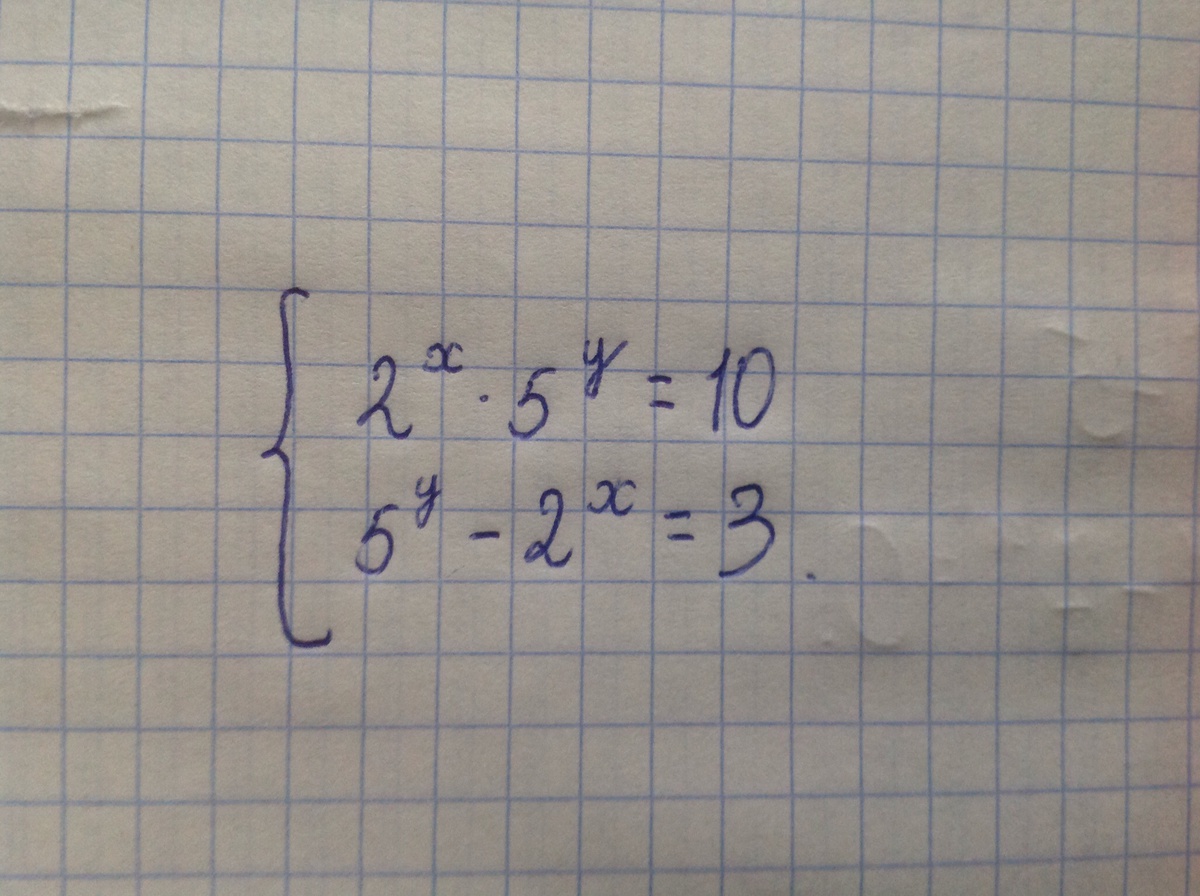 2^x · 5^y = 10
5^y - 2^x = 3.